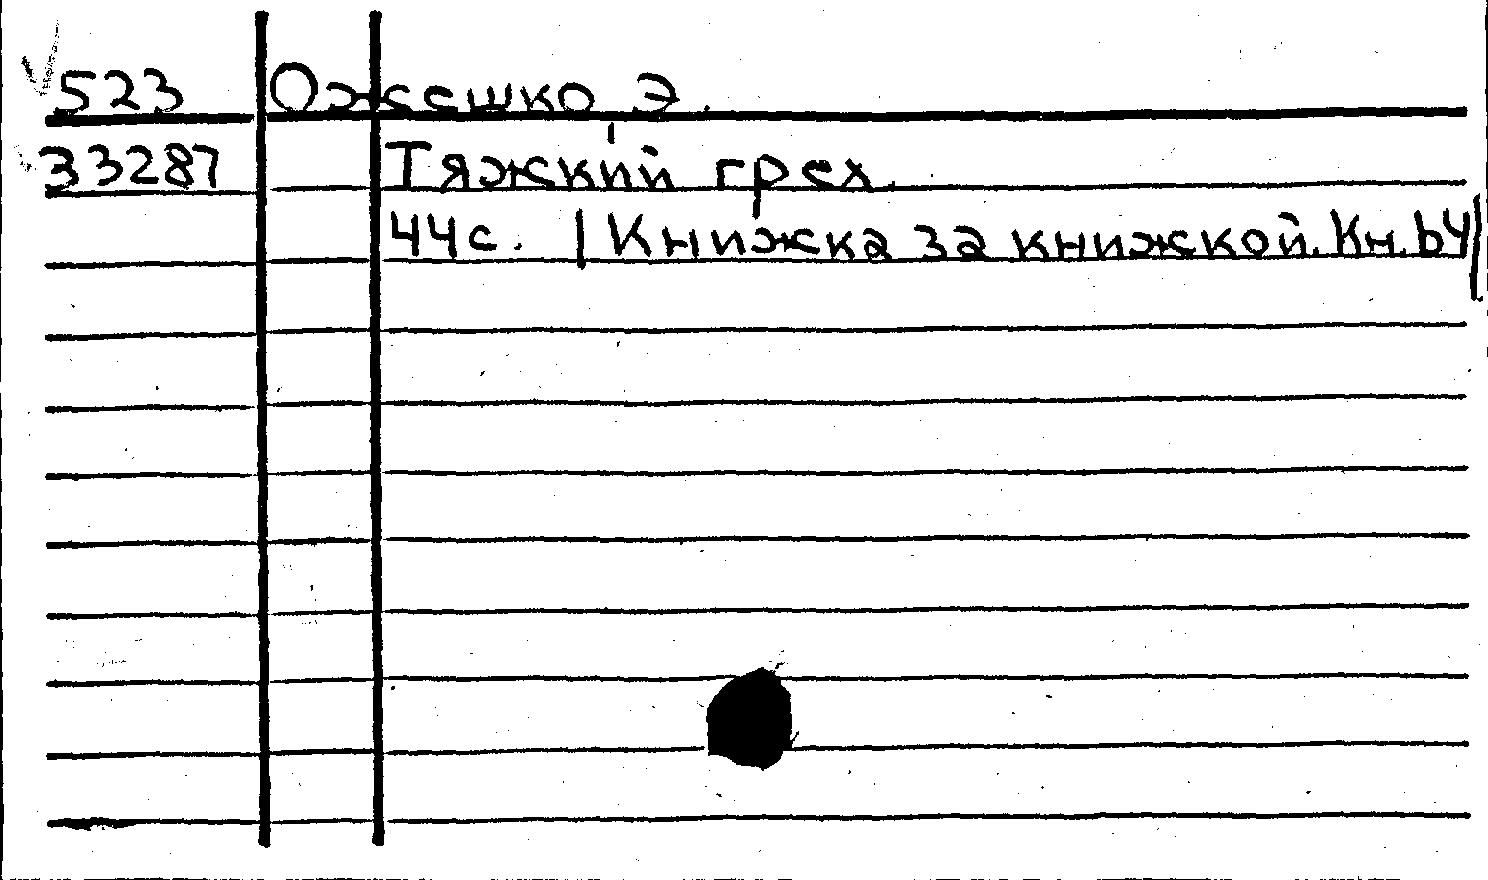 523 Ожешко Э.
33287 Тяжкий грех.
44с. |Книжка за книжкой. Кн. 64|